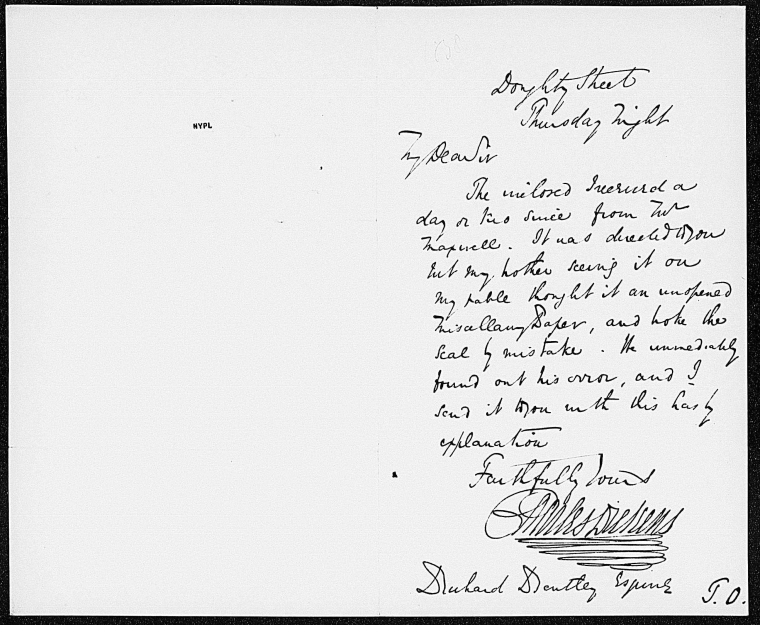 NYPL
Doughty Street
Thursday Night
My Dear Sir
The inclosed I received a
day or two since from Mr
Maxwell. It was directed to you
but my brother seeing it on
my table thought it an unopened
Miscellany Paper, and broke the
seal by mistake. He immediately
found out his error, and I
send it to you with this hasty
explanation
Faithfully Yours
Charles Dickens
Richard Bentley Esquire
T.O.